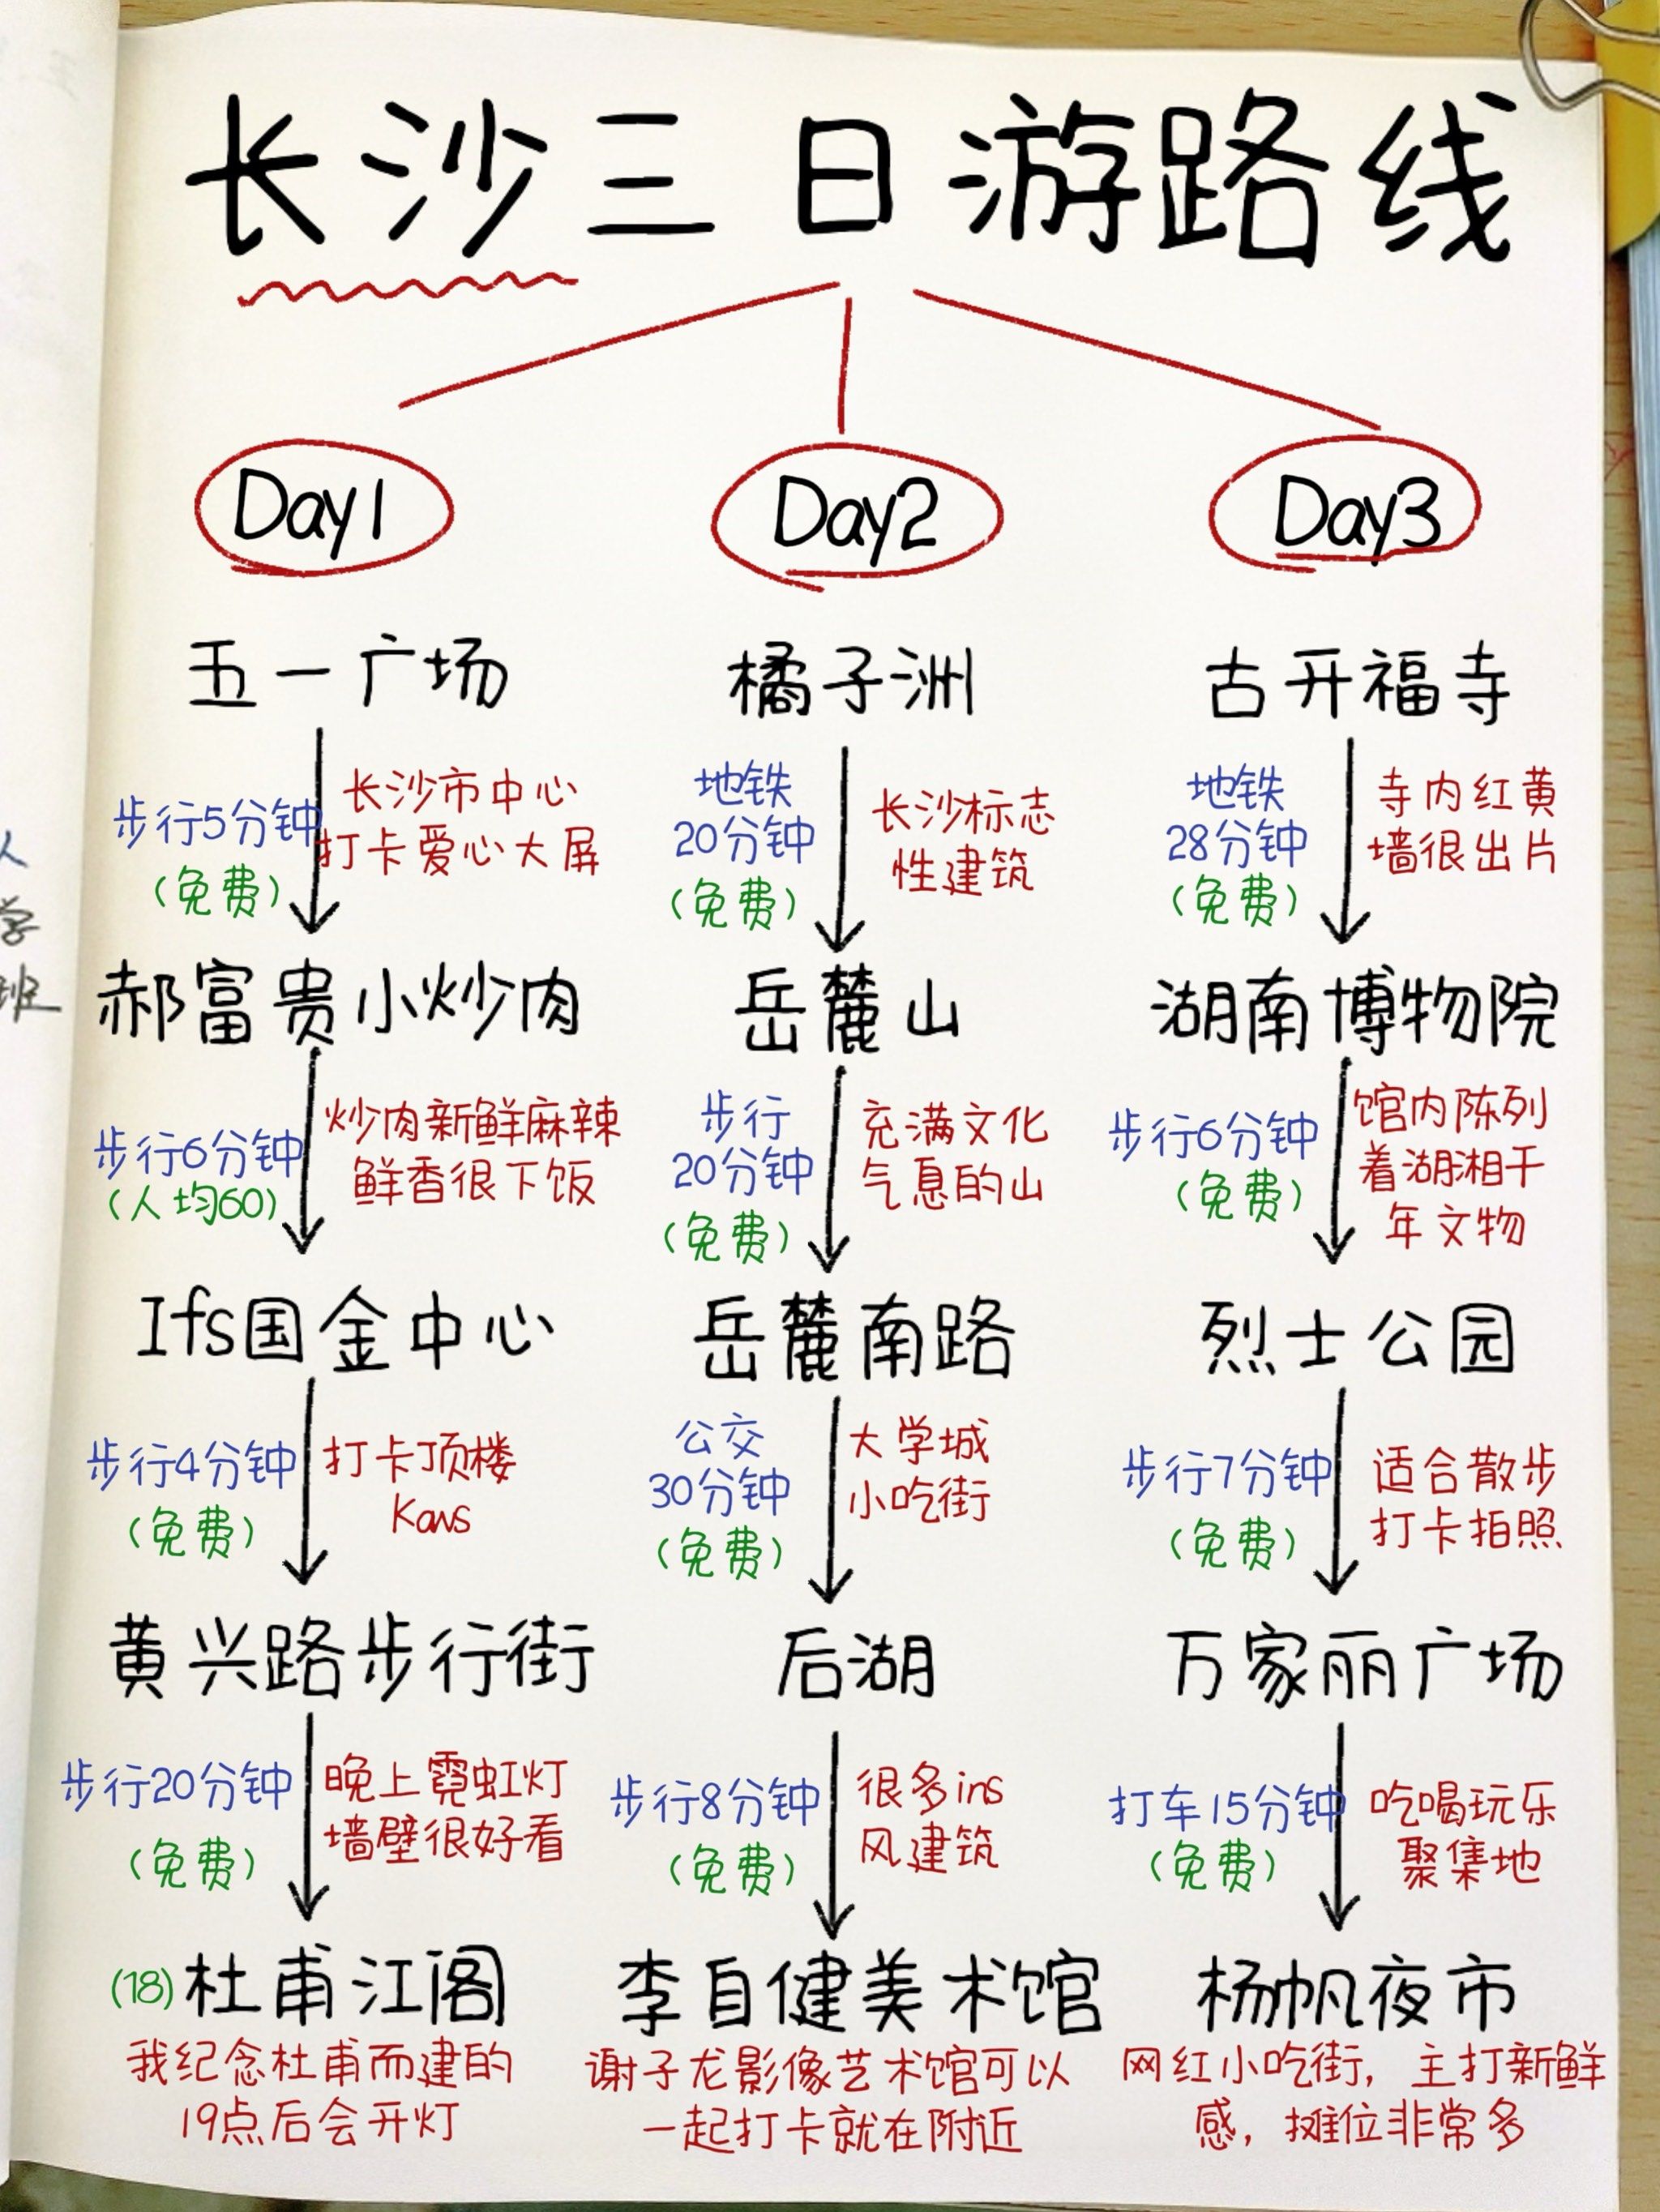 长沙三日游路线
Day1
五一广场
步行5分钟
(免费)
长沙市中心
打卡爱心大屏
郝富贵小炒肉
步行6分钟
(人均60)
炒肉新鲜麻辣
鲜香很下饭
Ifs国金中心
步行4分钟
(免费)
打卡顶楼
Kaws
黄兴路步行街
步行20分钟
(免费)
晚上霓虹灯
墙壁很好看
(18)杜甫江阁
我纪念杜甫而建的
19点后会开灯
Day2
橘子洲
地铁
20分钟
(免费)
长沙标志
性建筑
岳麓山
步行
20分钟
(免费)
充满文化
气息的山
岳麓南路
公交
30分钟
(免费)
大学城
小吃街
后湖
步行8分钟
(免费)
很多ins
风建筑
李自健美术馆
谢子龙影像艺术馆可以
一起打卡就在附近
Day3
古开福寺
地铁
28分钟
(免费)
寺内红黄
墙很出片
湖南博物院
步行6分钟
(免费)
馆内陈列
着湖湘千
年文物
烈士公园
步行7分钟
(免费)
适合散步
打卡拍照
万家丽广场
打车15分钟
(免费)
吃喝玩乐
聚集地
杨帆夜市
网红小吃街，主打新鲜
感，摊位非常多
人
学
班